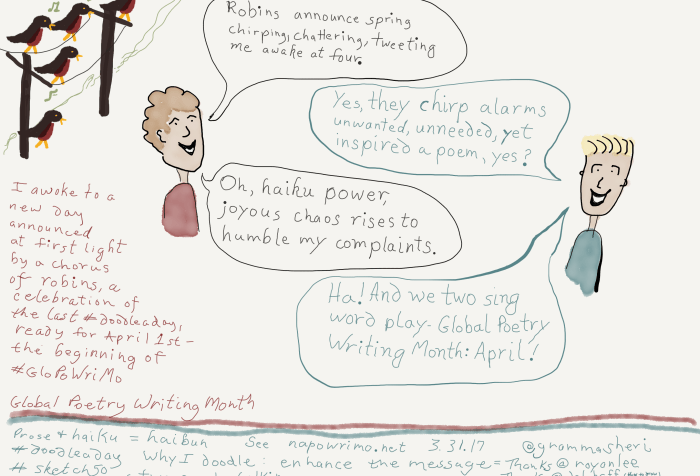 Robins announce spring
chirping, chattering, tweeting
me awake at four.
Yes, they chirp alarms
unwanted, unneeded, yet
inspired a poem, yes?
Oh, haiku power,
joyous chaos rises to
humble my complaints.
Ha! And we two sing
word play - Global Poetry
Writing Month: April!
I awoke to a
new day
announced
at first light
by a chorus
of robins, a
celebration of
the last #doodleaday,
ready for April 1st -
the beginning of
#GloPoWriMo
Global Poetry Writing Month
Prose + haiku = haibun See napowrimo.net 3.31.17 @grammasheri
#doodleaday Why I doodle: enhance the message = Thanks @royanlee
# sketch50